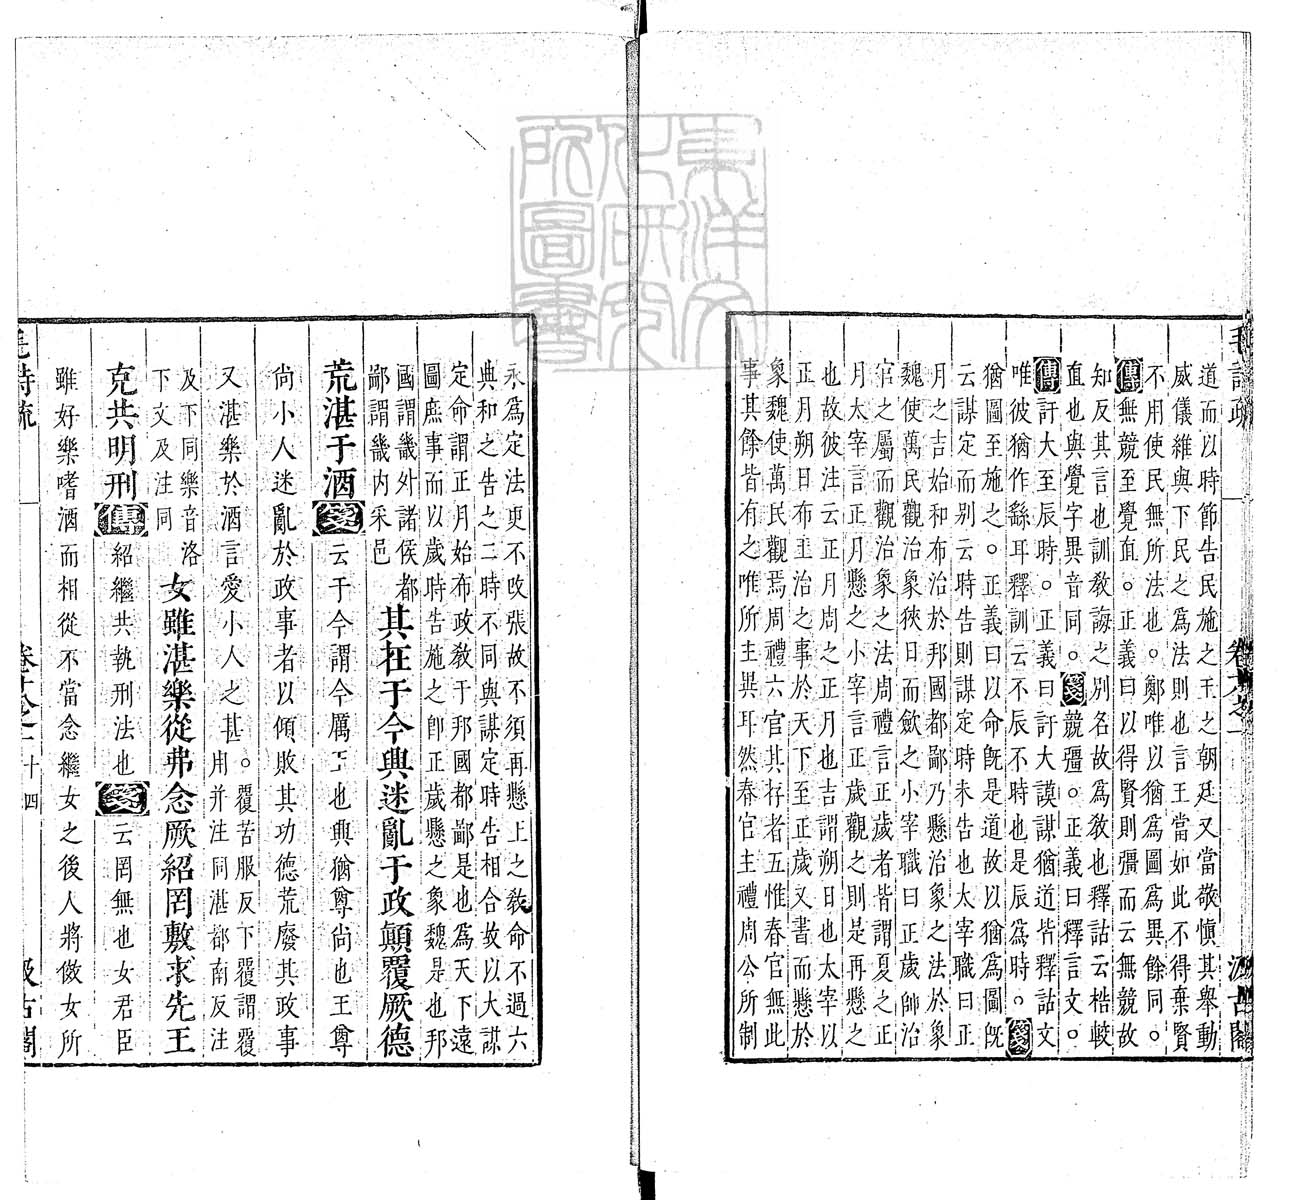 毛詩疏 卷十八之一 汲古閣
道而以時節告民施之王之朝廷又當敬愼其舉動
威儀維與下民之爲法則也言王當如此不得棄賢
不用使民無所法也○鄭唯以猶爲圖爲異餘同○
傳無競至覺直○正義曰以得賢則彊而云無競故
知反其言也訓敎誨之別名故爲敎也釋詁云梏較
直也與覺字異音同○箋競彊○正義曰釋言文○
傳訏大至辰時○正義曰訏大謨謀猶道皆釋詁文
唯彼猶作繇耳釋訓云不辰不時也是辰爲時○箋
猶圖至施之○正義曰以命旣是道故以猶爲圖旣
云謀定而别云時告則謀定時未告也太宰職曰正
月之吉始和布治於邦國都鄙乃懸治象之法於象
魏使萬民觀治象挾日而斂之小宰職曰正歲帥治
官之屬而觀治象之法周禮言正歲者皆謂夏之正
月太宰言正月懸之小宰言正歲觀之則是再懸之
也故彼注云正月周之正月也吉謂朔日也太宰以
正月朔日布王治之事於天下至正歲又書而懸於
象魏使萬民觀焉周禮六官其存者五惟春官無此
事其餘皆有之唯所主異耳然春官主禮周公所制
永爲定法更不改張故不須再懸上之敎命不過六
典和之告之二時不同與謀定時告相合故以大謀
定命謂正月始布政敎于邦國都鄙是也爲天下遠
圖庶事而以歲時告施之卽正歲懸之象魏是也邦
國謂畿外諸侯都
鄙謂畿内采邑
其在于今興迷亂于政顛覆厥德
荒湛于酒箋云于今謂今厲王也興猶尊尚也王尊
尚小人迷亂於政事者以傾敗其功德荒廢其政事
又湛樂於酒言愛小人之甚○覆芳服反下覆謂覆
用并注同湛都南反注
及下同樂音洛
下文及注同
女雖湛樂從弗念厥紹罔敷求先王
克共明刑傳紹繼共執刑法也箋云罔無也女君臣
雖好樂嗜酒而相從不當念繼女之後人將傚女所
毛詩疏 卷十八之一 十四 汲古閣